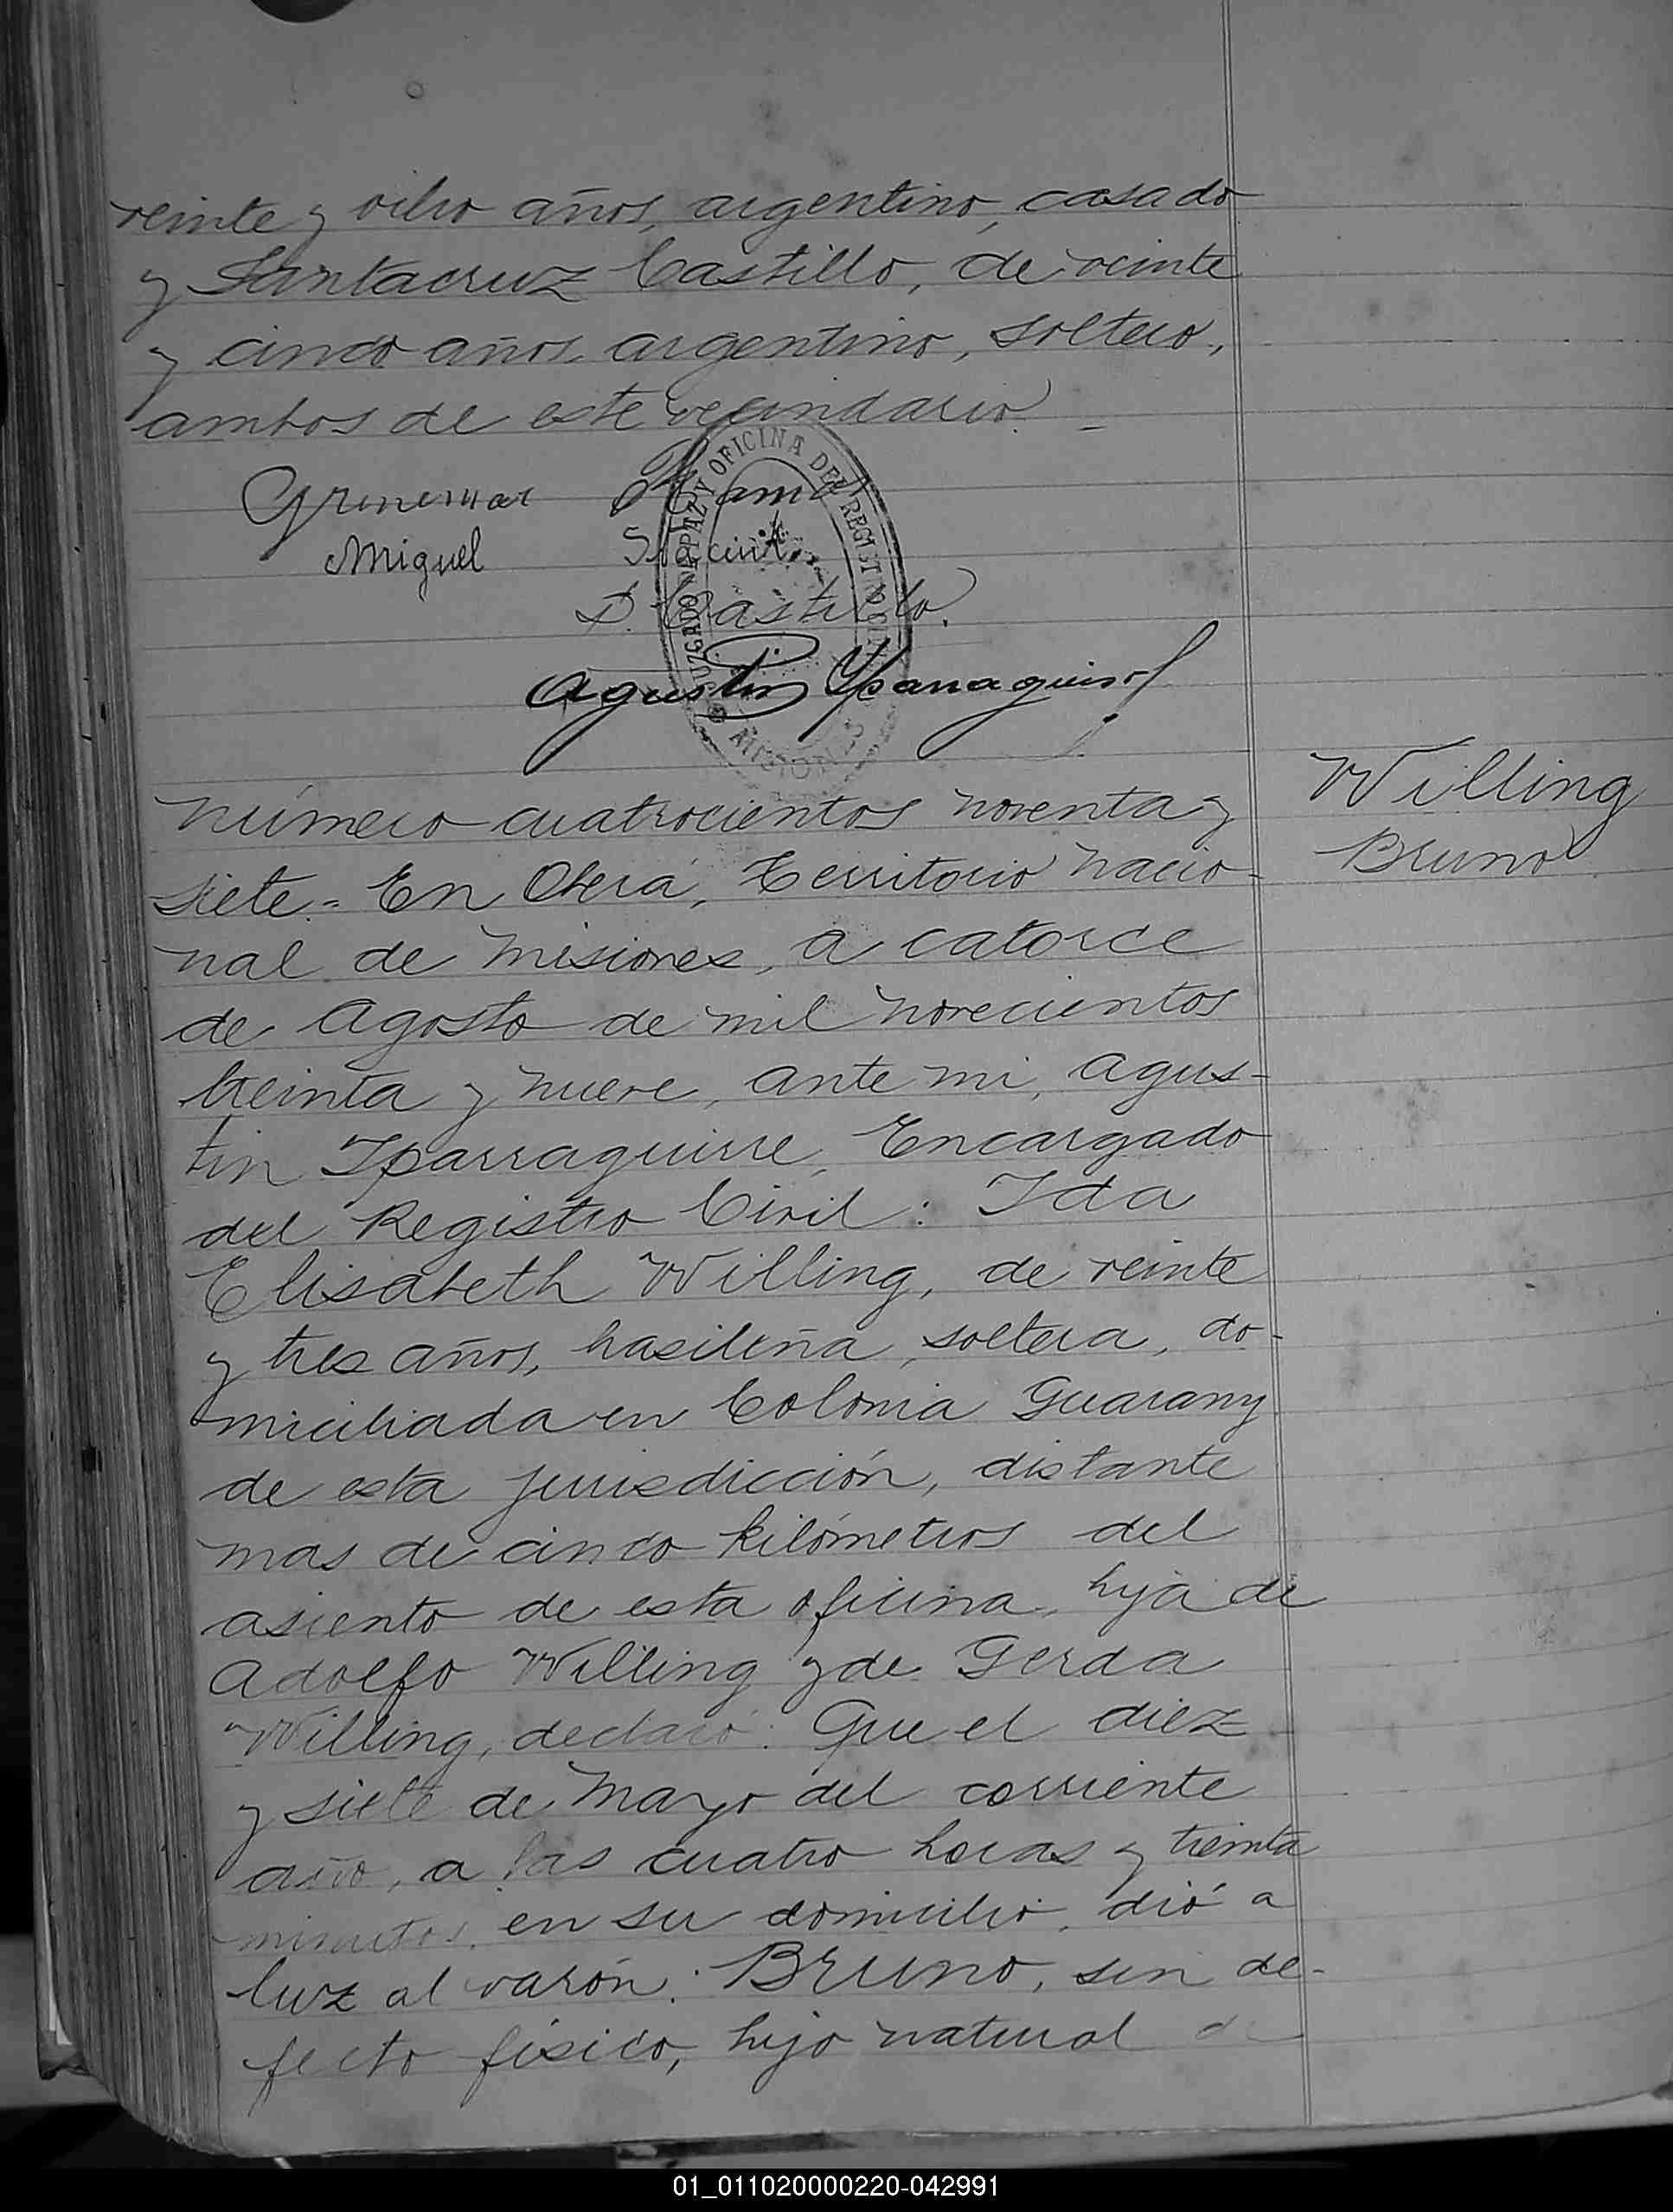 veinte y ocho años, argentino, casado
y Santacruz Castillo, de veinte
y cinco años, argentino, soltero,
ambos de este vecindario. -
Miguel
S. Castillo.
Agustin Yparraguirre
JUZGADO DE PAZ Y OFICINA DEL REGISTRO CIVIL
MISIONES
Número cuatrocientos noventa y
siete.= En Oberá, Territorio Nacio-
nal de Misiones, a catorce
de Agosto de mil novecientos
treinta y nueve, ante mi, Agus-
tin Iparraguirre, Encargado
del Registro Civil: Ida
Elisabeth Willing, de veinte
y tres años, brasileña, soltera, do-
miciliada en Colonia Guarany
de esta jurisdicción, distante
mas de cinco kilómetros del
asiento de esta oficina, hija de
Adolfo Willing y de Gerda
Willing, declaró: Que el diez
y siete de Mayo del corriente
año, a las cuatro horas y treinta
minutos, en su domicilio, dió a
luz al varón: Bruno, sin de-
fecto fisico, hijo natural de
Willing
Bruno
01_011020000220-042991